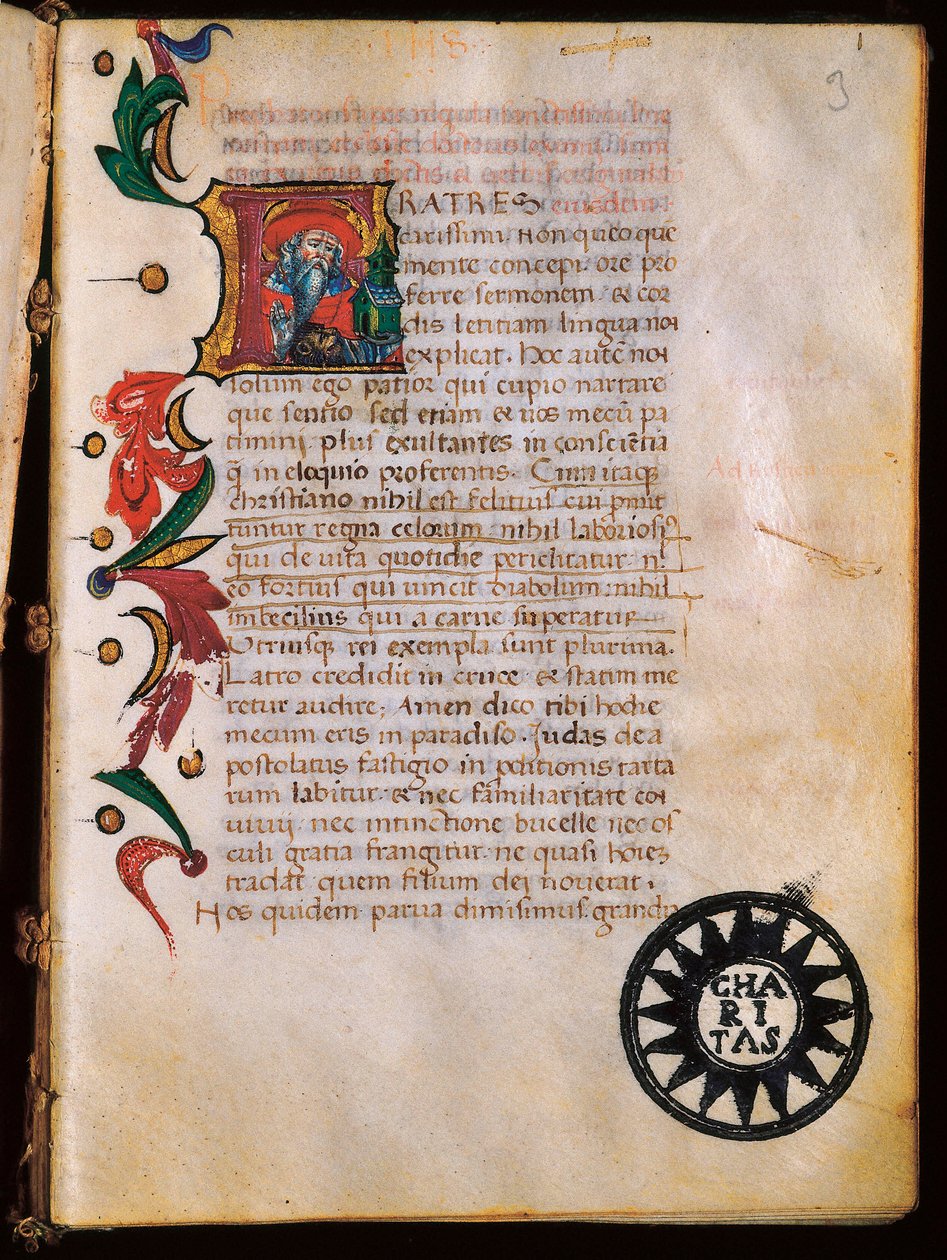 IHS
1
3
FRATRES
carissimi. Non queo que
mente concepi. ore pro
ferre sermonem. & cor
dis letitiam lingua non
explicat. hoc autē non
solum ego patior qui cupio narrare
que sentio sed etiam & uos mecū pa
timini. plus exultantes in consciētia
q̄ in eloquio proferentis. Cum itaq;
christiano nihil est felitius cui pmit
tuntur regna celorum. nihil laboriosi9
qui de uita quotidie periclitatur. nl.
eo fortius qui uincit diabolum. nihil
imbecilius qui a carne superatur
Utriusq; rei exempla sunt plurima.
Latro credidit in cruce. & statim me
retur audire; Amen dico tibi hodie
mecum eris in paradiso. Judas de a
postolatus fastigio in pditionis tarta
rum labitur. & nec familiaritate con
uiuij. nec intinctione bucelle nec os
culi gratia frangitur. ne quasi hoiez
tradat quem filium dei nouerat.
Nos quidem parua dimisimus. grandia
CHA
RI
TAS